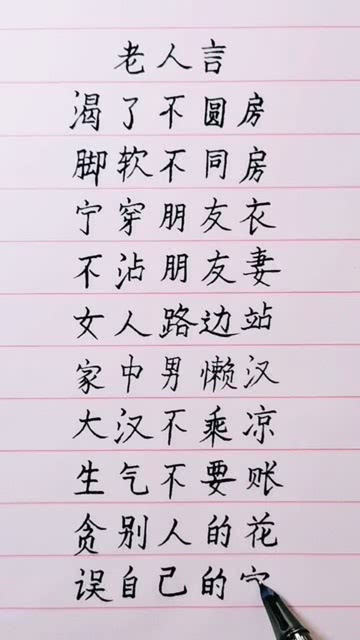 老人言
渴了不圆房
脚软不同房
宁穿朋友衣
不沾朋友妻
女人路边站
家中男懒汉
大汉不乘凉
生气不要账
贪别人的花
误自己的